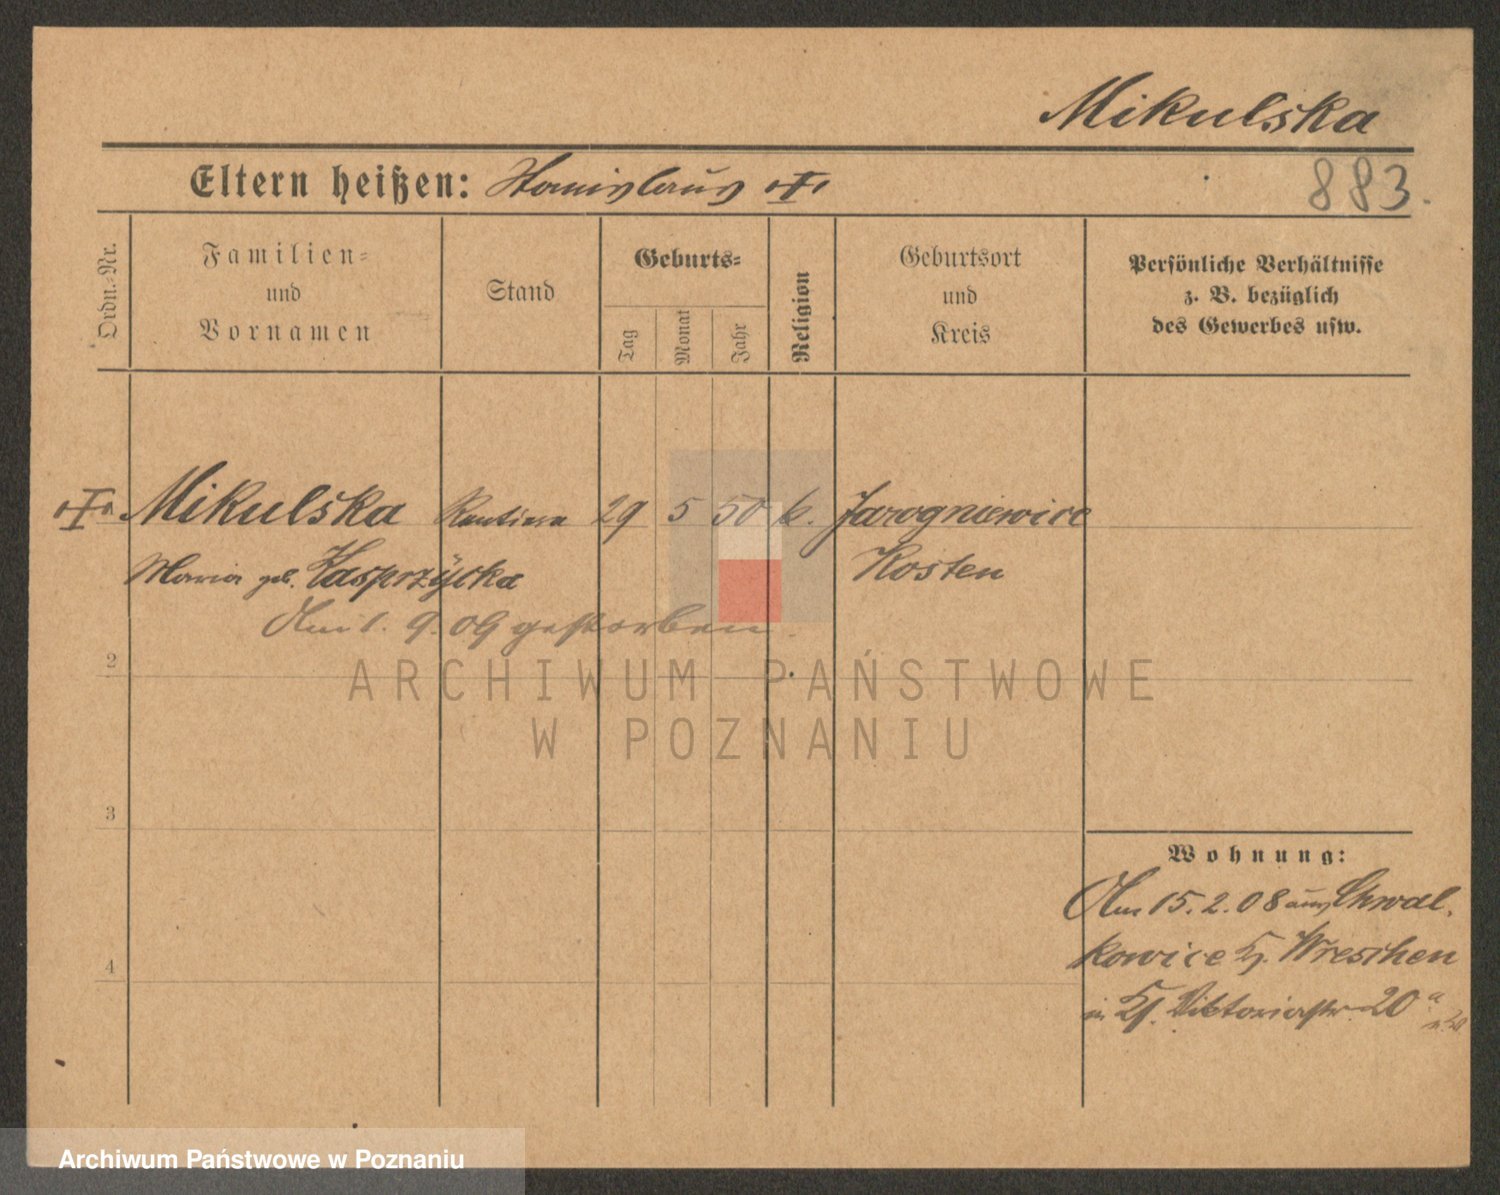 Mikulska
Eltern heißen: Stanislaus
883.
Ordn.-Nr.
Familien-
und
Vornamen
Stand
Geburts-
Tag
Monat
Jahr
Religion
Geburtsort
und
Kreis
Persönliche Verhältnisse
z. B. bezüglich
des Gewerbes usw.
Mikulska Rentiera 29 5 50 k. Jarogniewice
Maria geb. Kasprzýcka Kosten
Am 1. 9. 09 gestorben.
2
ARCHIWUM PAŃSTWOWE
W POZNANIU
3
Wohnung:
Am 15. 2. 08 aus Chwal-
kowice Kr. Wreschen
in Viktoriastr. 20
4
Archiwum Państwowe w Poznaniu